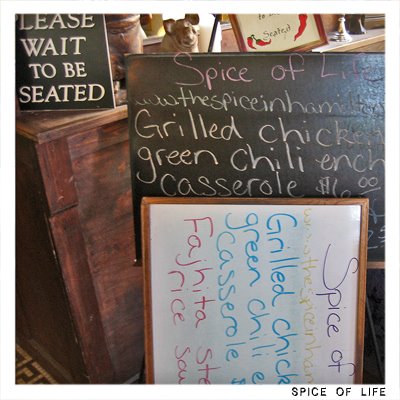 PLEASE
WAIT
TO BE
SEATED
to be
Seated
Spice of Life
www.thespiceinhamilton
Grilled chicken
green chili ench
casserole $16.00
Spice of
www.thespiceinham
Grilled chick
green chili e
casserole $
Fajhita ste
rice sau
SPICE OF LIFE